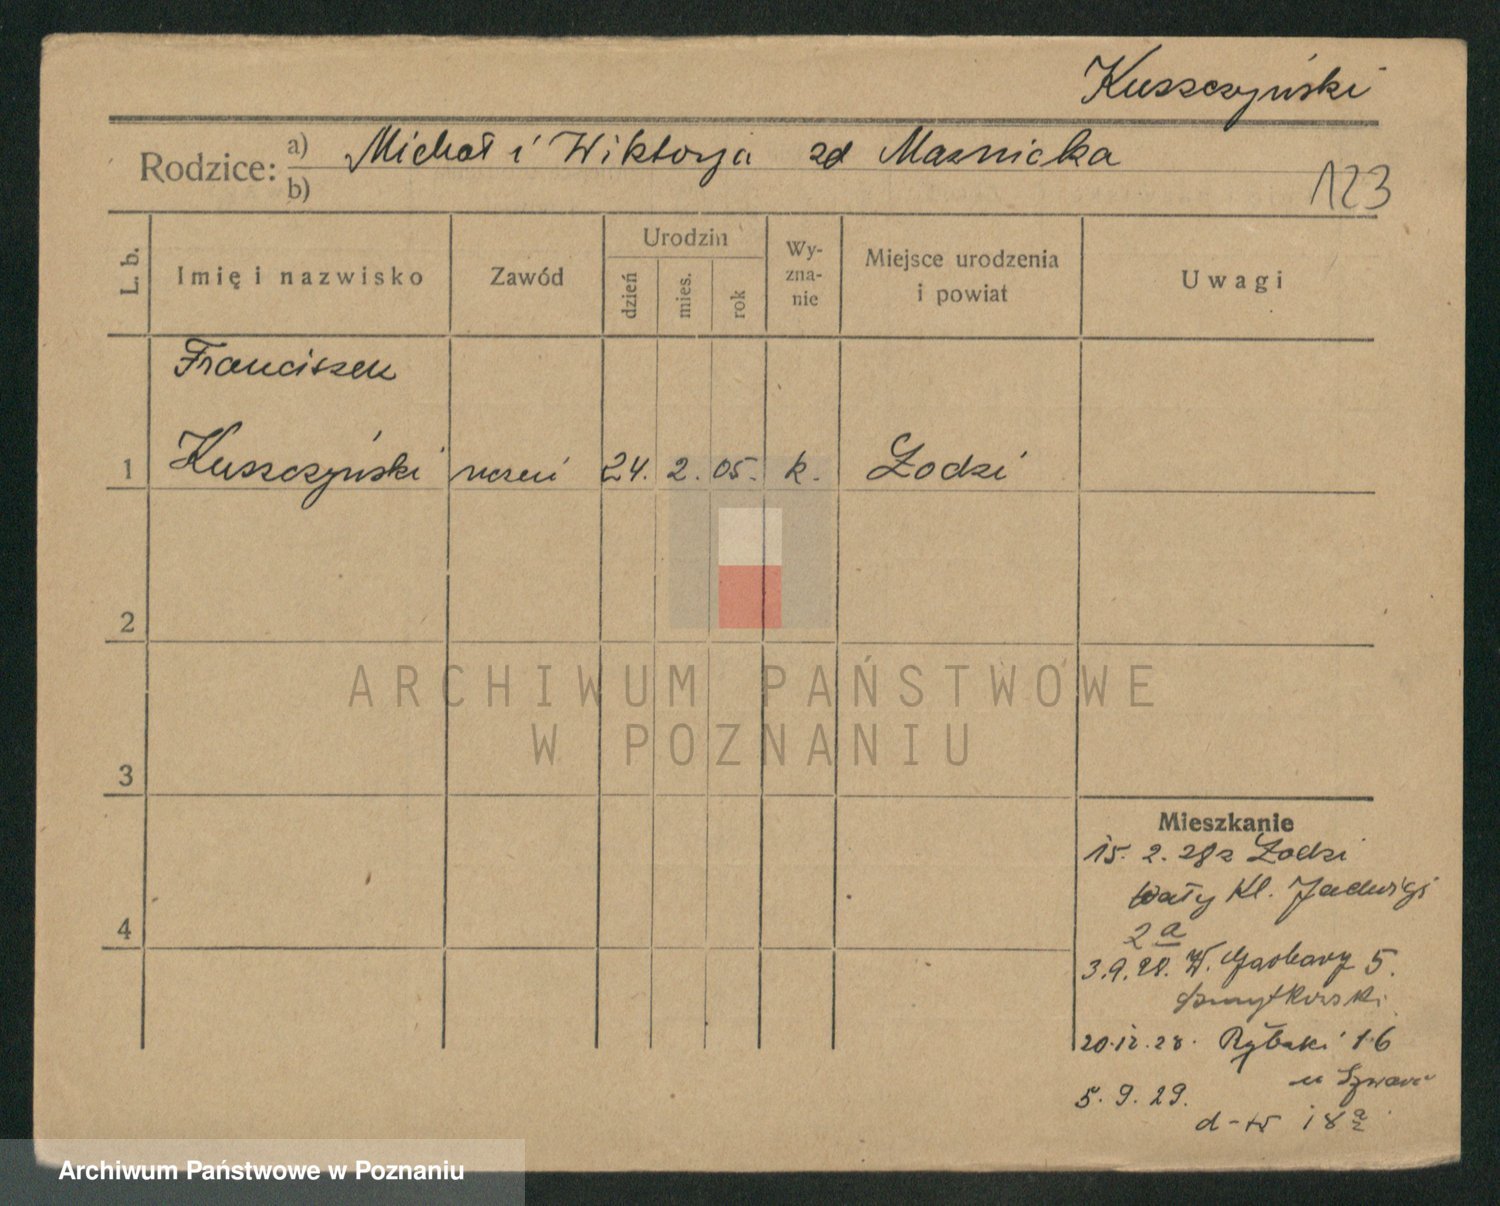 Kuszczyński
Rodzice: a) Michał i Wiktorja zd Maznicka
b)
123
L. b.
Imię i nazwisko
Zawód
Urodzin
dzień
mies.
rok
Wy-
zna-
nie
Miejsce urodzenia
i powiat
Uwagi
Franciszek
1 Kuszczyński uczeń 24. 2. 05. k. Łodzi
2
3
4
ARCHIWUM PAŃSTWOWE
W POZNANIU
Mieszkanie
15. 2. 28 z Łodzi
Wały Kl. Jadwigi
2 a
3.9.28. W. Garbary 5.
20.12.28. Rybaki 16
u
5. 9. 29.
18 a
Archiwum Państwowe w Poznaniu